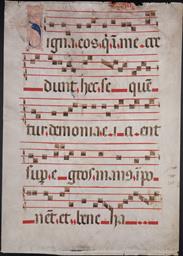 Signa eos, q̄a me cre
dunt, hec se quēt
tur. demonia e i ci ent
sup. e gros manus īpo
nēt. et bene ha